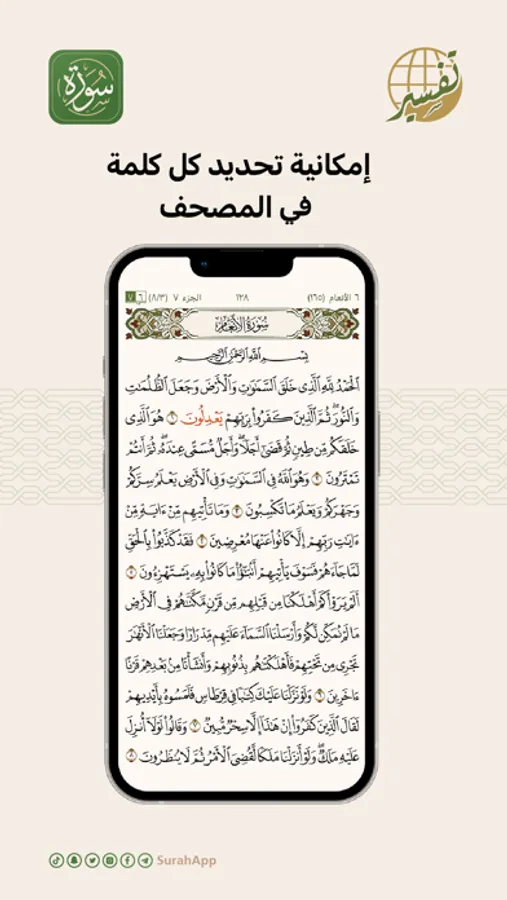 سُورَة
تفسير
إمكانية تحديد كل كلمة
في المصحف
٦ الأنعام (١٦٥) ١٢٨ الجزء ٧ (٨/٣) ٦ ٧
سُورَةُ الأَنْعَامِ
بِسْمِ ٱللَّهِ ٱلرَّحْمَٰنِ ٱلرَّحِيمِ
ٱلْحَمْدُ لِلَّهِ ٱلَّذِى خَلَقَ ٱلسَّمَٰوَٰتِ وَٱلْأَرْضَ وَجَعَلَ ٱلظُّلُمَٰتِ
وَٱلنُّورَ ۖ ثُمَّ ٱلَّذِينَ كَفَرُوا۟ بِرَبِّهِمْ يَعْدِلُونَ ١ هُوَ ٱلَّذِى
خَلَقَكُم مِّن طِينٍ ثُمَّ قَضَىٰٓ أَجَلًا ۖ وَأَجَلٌ مُّسَمًّى عِندَهُۥ ۖ ثُمَّ أَنتُمْ
تَمْتَرُونَ ٢ وَهُوَ ٱللَّهُ فِى ٱلسَّمَٰوَٰتِ وَفِى ٱلْأَرْضِ ۖ يَعْلَمُ سِرَّكُمْ
وَجَهْرَكُمْ وَيَعْلَمُ مَا تَكْسِبُونَ ٣ وَمَا تَأْتِيهِم مِّنْ ءَايَةٍ مِّنْ
ءَايَٰتِ رَبِّهِمْ إِلَّا كَانُوا۟ عَنْهَا مُعْرِضِينَ ٤ فَقَدْ كَذَّبُوا۟ بِٱلْحَقِّ
لَمَّا جَآءَهُمْ ۖ فَسَوْفَ يَأْتِيهِمْ أَنۢبَٰٓؤُا۟ مَا كَانُوا۟ بِهِۦ يَسْتَهْزِءُونَ ٥
أَلَمْ يَرَوْا۟ كَمْ أَهْلَكْنَا مِن قَبْلِهِم مِّن قَرْنٍ مَّكَّنَّٰهُمْ فِى ٱلْأَرْضِ
مَا لَمْ نُمَكِّن لَّكُمْ وَأَرْسَلْنَا ٱلسَّمَآءَ عَلَيْهِم مِّدْرَارًا وَجَعَلْنَا ٱلْأَنْهَٰرَ
تَجْرِى مِن تَحْتِهِمْ فَأَهْلَكْنَٰهُم بِذُنُوبِهِمْ وَأَنشَأْنَا مِنۢ بَعْدِهِمْ قَرْنًا
ءَاخَرِينَ ٦ وَلَوْ نَزَّلْنَا عَلَيْكَ كِتَٰبًا فِى قِرْطَاسٍ فَلَمَسُوهُ بِأَيْدِيهِمْ
لَقَالَ ٱلَّذِينَ كَفَرُوٓا۟ إِنْ هَٰذَآ إِلَّا سِحْرٌ مُّبِينٌ ٧ وَقَالُوا۟ لَوْلَآ أُنزِلَ
عَلَيْهِ مَلَكٌ ۖ وَلَوْ أَنزَلْنَا مَلَكًا لَّقُضِىَ ٱلْأَمْرُ ثُمَّ لَا يُنظَرُونَ ٨
SurahApp